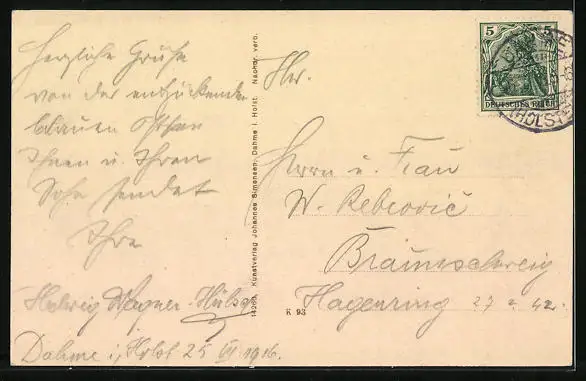 Herzliche Grüße
von der entzückenden
blauen Ostsee
Ihnen u. Ihrem
Sohn sendet
Ihre
Hedwig Wagner-Hülse
Dahme i. Holst 25 VII 1916.
14269 Kunstverlag Johannes Simonsen, Dahme i. Holst. Nachdr. verb.
K 93
5 5
DEUTSCHES REICH
(HOLSTEIN)
Herrn u. Frau
W. Rebcovič
Braunschweig
Hagenring 27